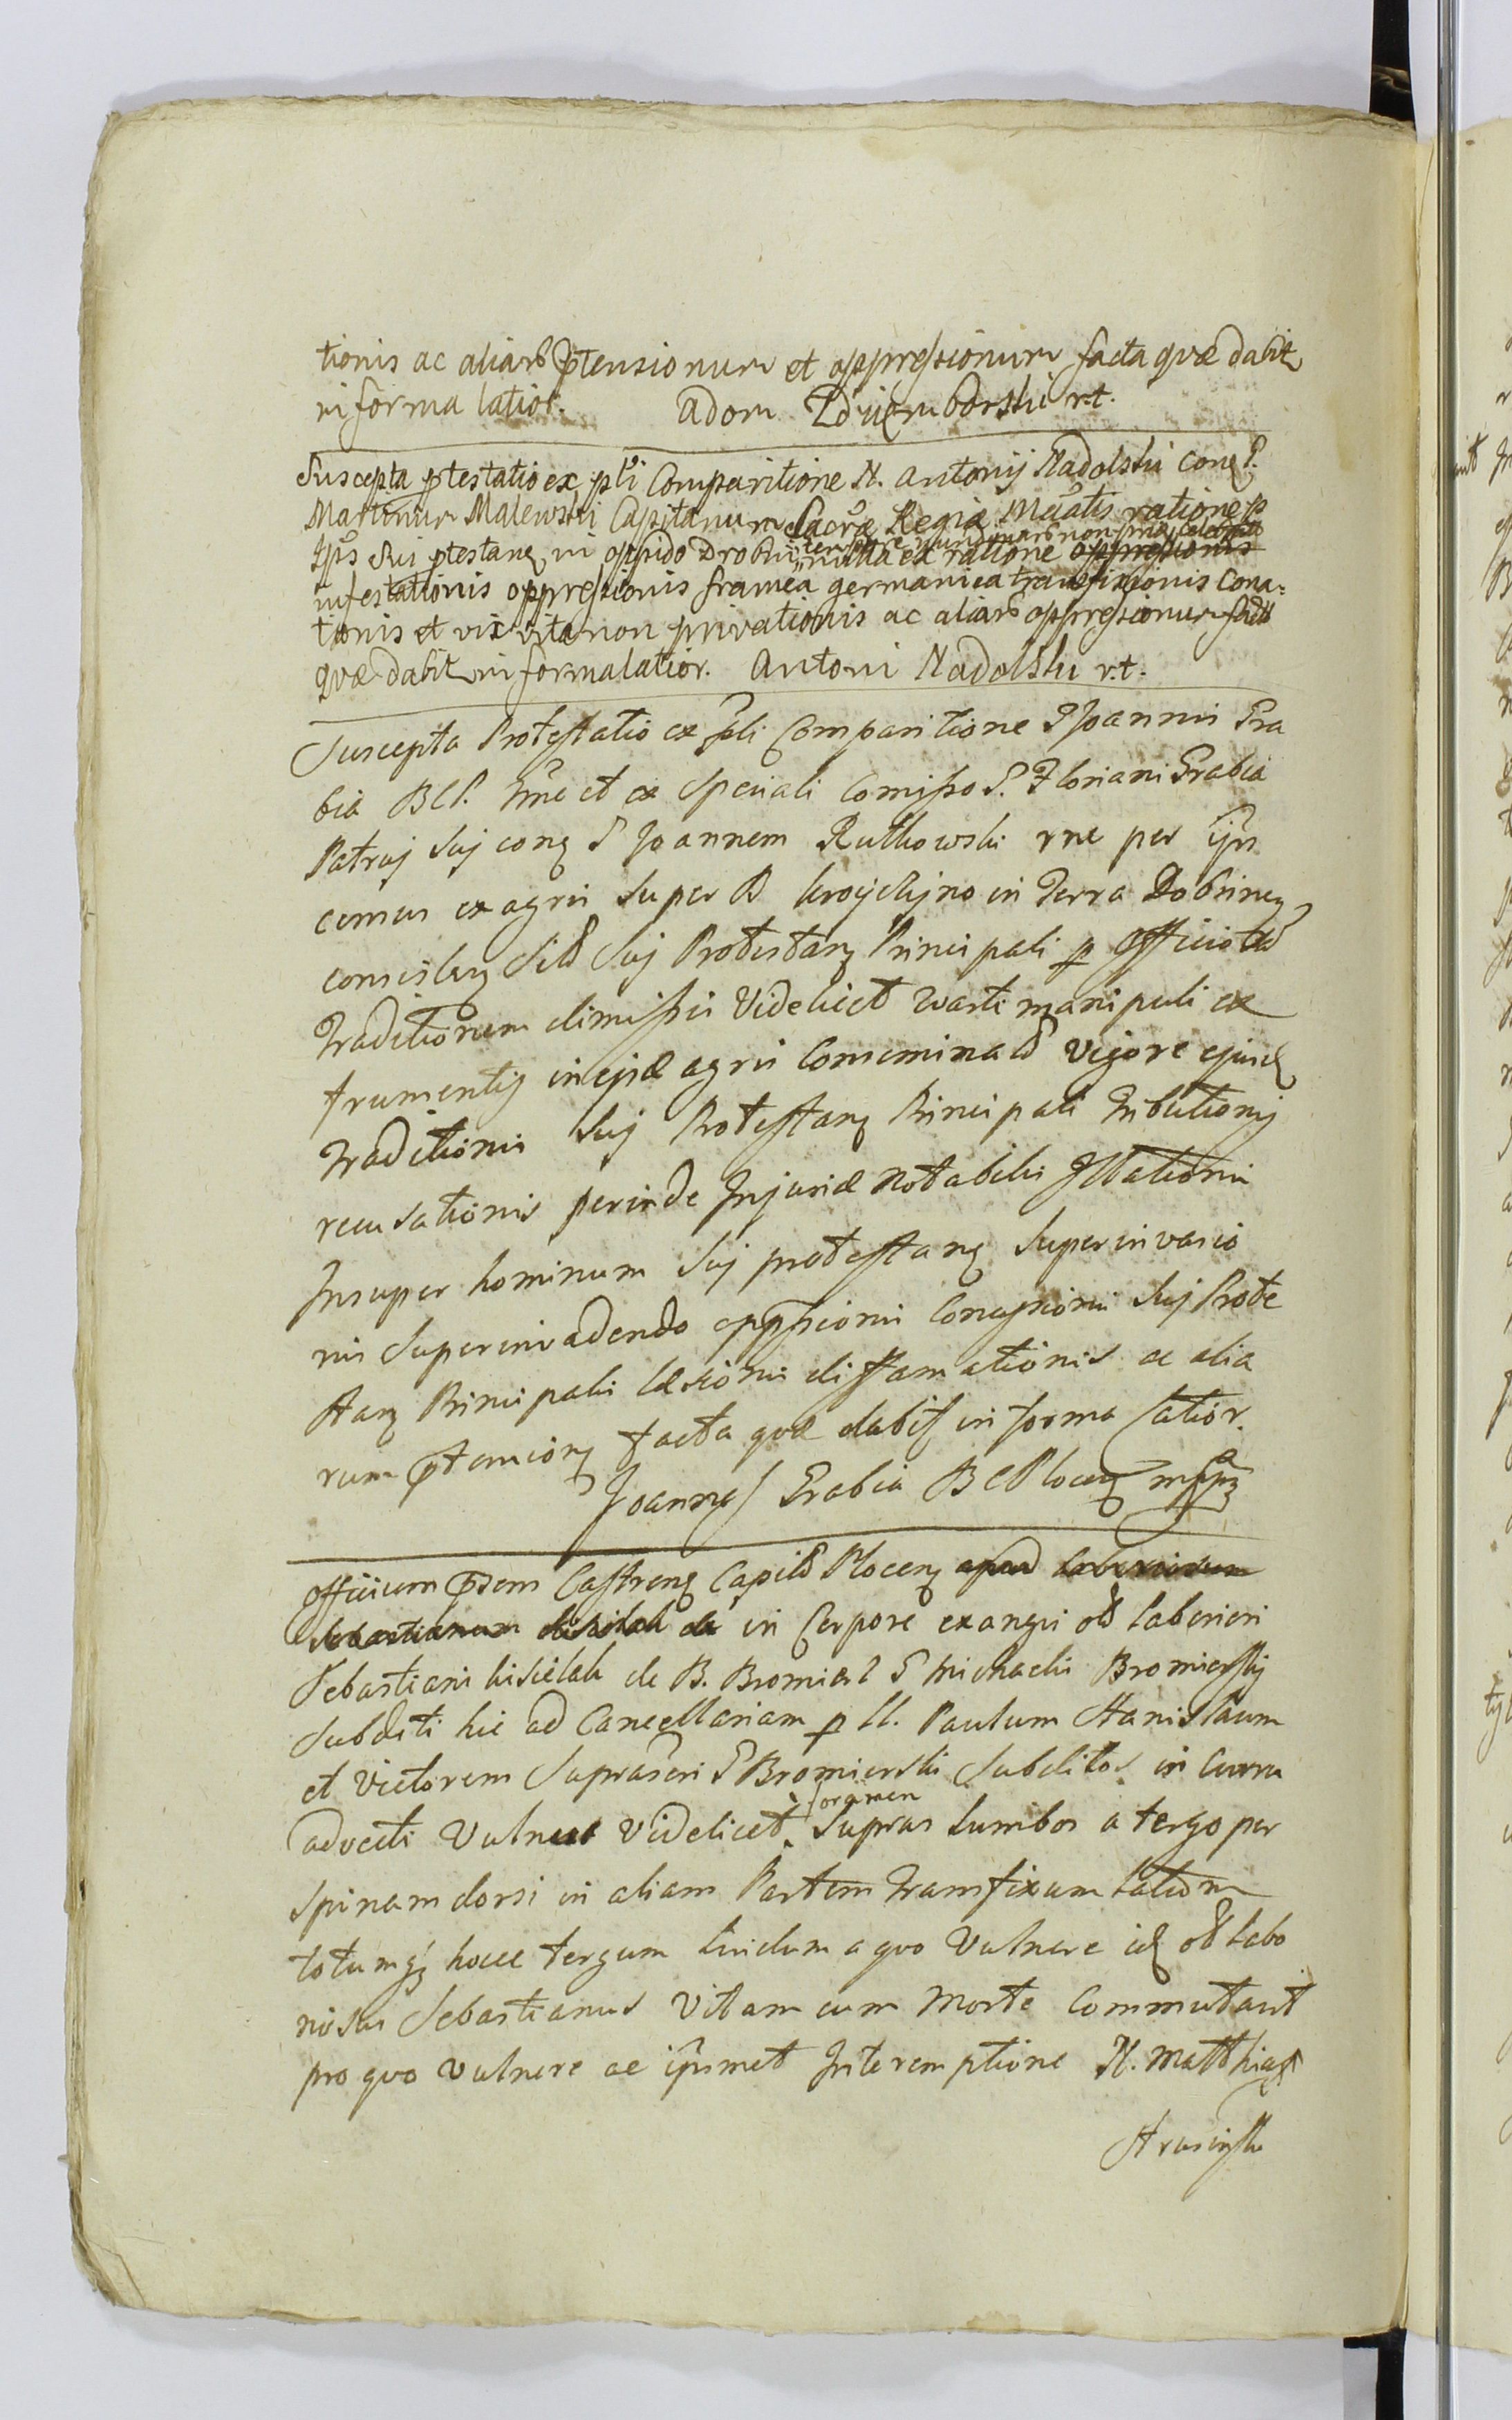 tionis ac aliarũ ptensionum et oppressionum facta quæ dabit
in forma latior. Adam Zdziemborski r.t.
Suscepta ptestatio ex pli Comparitione N. Antonij Nadolski conq P.
Martinum Malewski Capitanum Sacræ Regiæ Mattis ratione p
Ipũs sui ptestanq in oppido Drobin tempore nundinarũ non nulla ex ratione oppressionis
infestationis oppressionis framea germanica transfixionis Cona-
tionis et vix vita non privationis ac aliarũ oppressionum facta
quæ dabit in forma latior. Antoni Nadolski r.t.
Suscepta Protestatio ex pli Comparitione P Joannis Gra
bia BCP. Nne et ex speciali Comisso P. Floriani Grabia
Patruj Suj conq P Joannem Rutkowski rne per ipn
census ex agris super B in Terra Dobrinen
consisten Suj Protestanq Principali p Officio
Traditorum dimissis Videlicet quarti manipuli ex
frumentis in ejsd agris Conseminatũ vigore ejusd
Traditionis Suj Protestanq Principali Tributionis
recusationis perinde Injuriæ notabilis Illationis
Insuper hominum Suj protestanq Superinvasio
nis Superinvadendo oppssionis Concussionis Suj Prote
stanq Principalis læsionis diffamationis ac alia
rum ptensionq facta quæ dabit in forma latior.
Joannes Grabia BCPlocen mppq
Officium pdens Castrenq Capitũ Plocen apud laboriosum
Sebastianum Kisielak de in Corpore exangui olĩ laboriosi
Sebastiani Kisielak de B. Bromierz P Michaelis Bromierskij
Subditi hic ad Cancellariam p ll. Paulum Stanislaum
et Victorem Suprascri P Bromierski Subditos in Curru
advecti Vulnus Videlicet foramen Supra lumbos a tergo per
Spinam dorsi in aliam Partem transfixum latum
totumqz hocce tergum lividum a quo Vulnere id olĩ labo
riosus Sebastianus Vitam cum Morte Commutavit
pro quo Vulnere ac ipsmet Interemptione N. Matthias